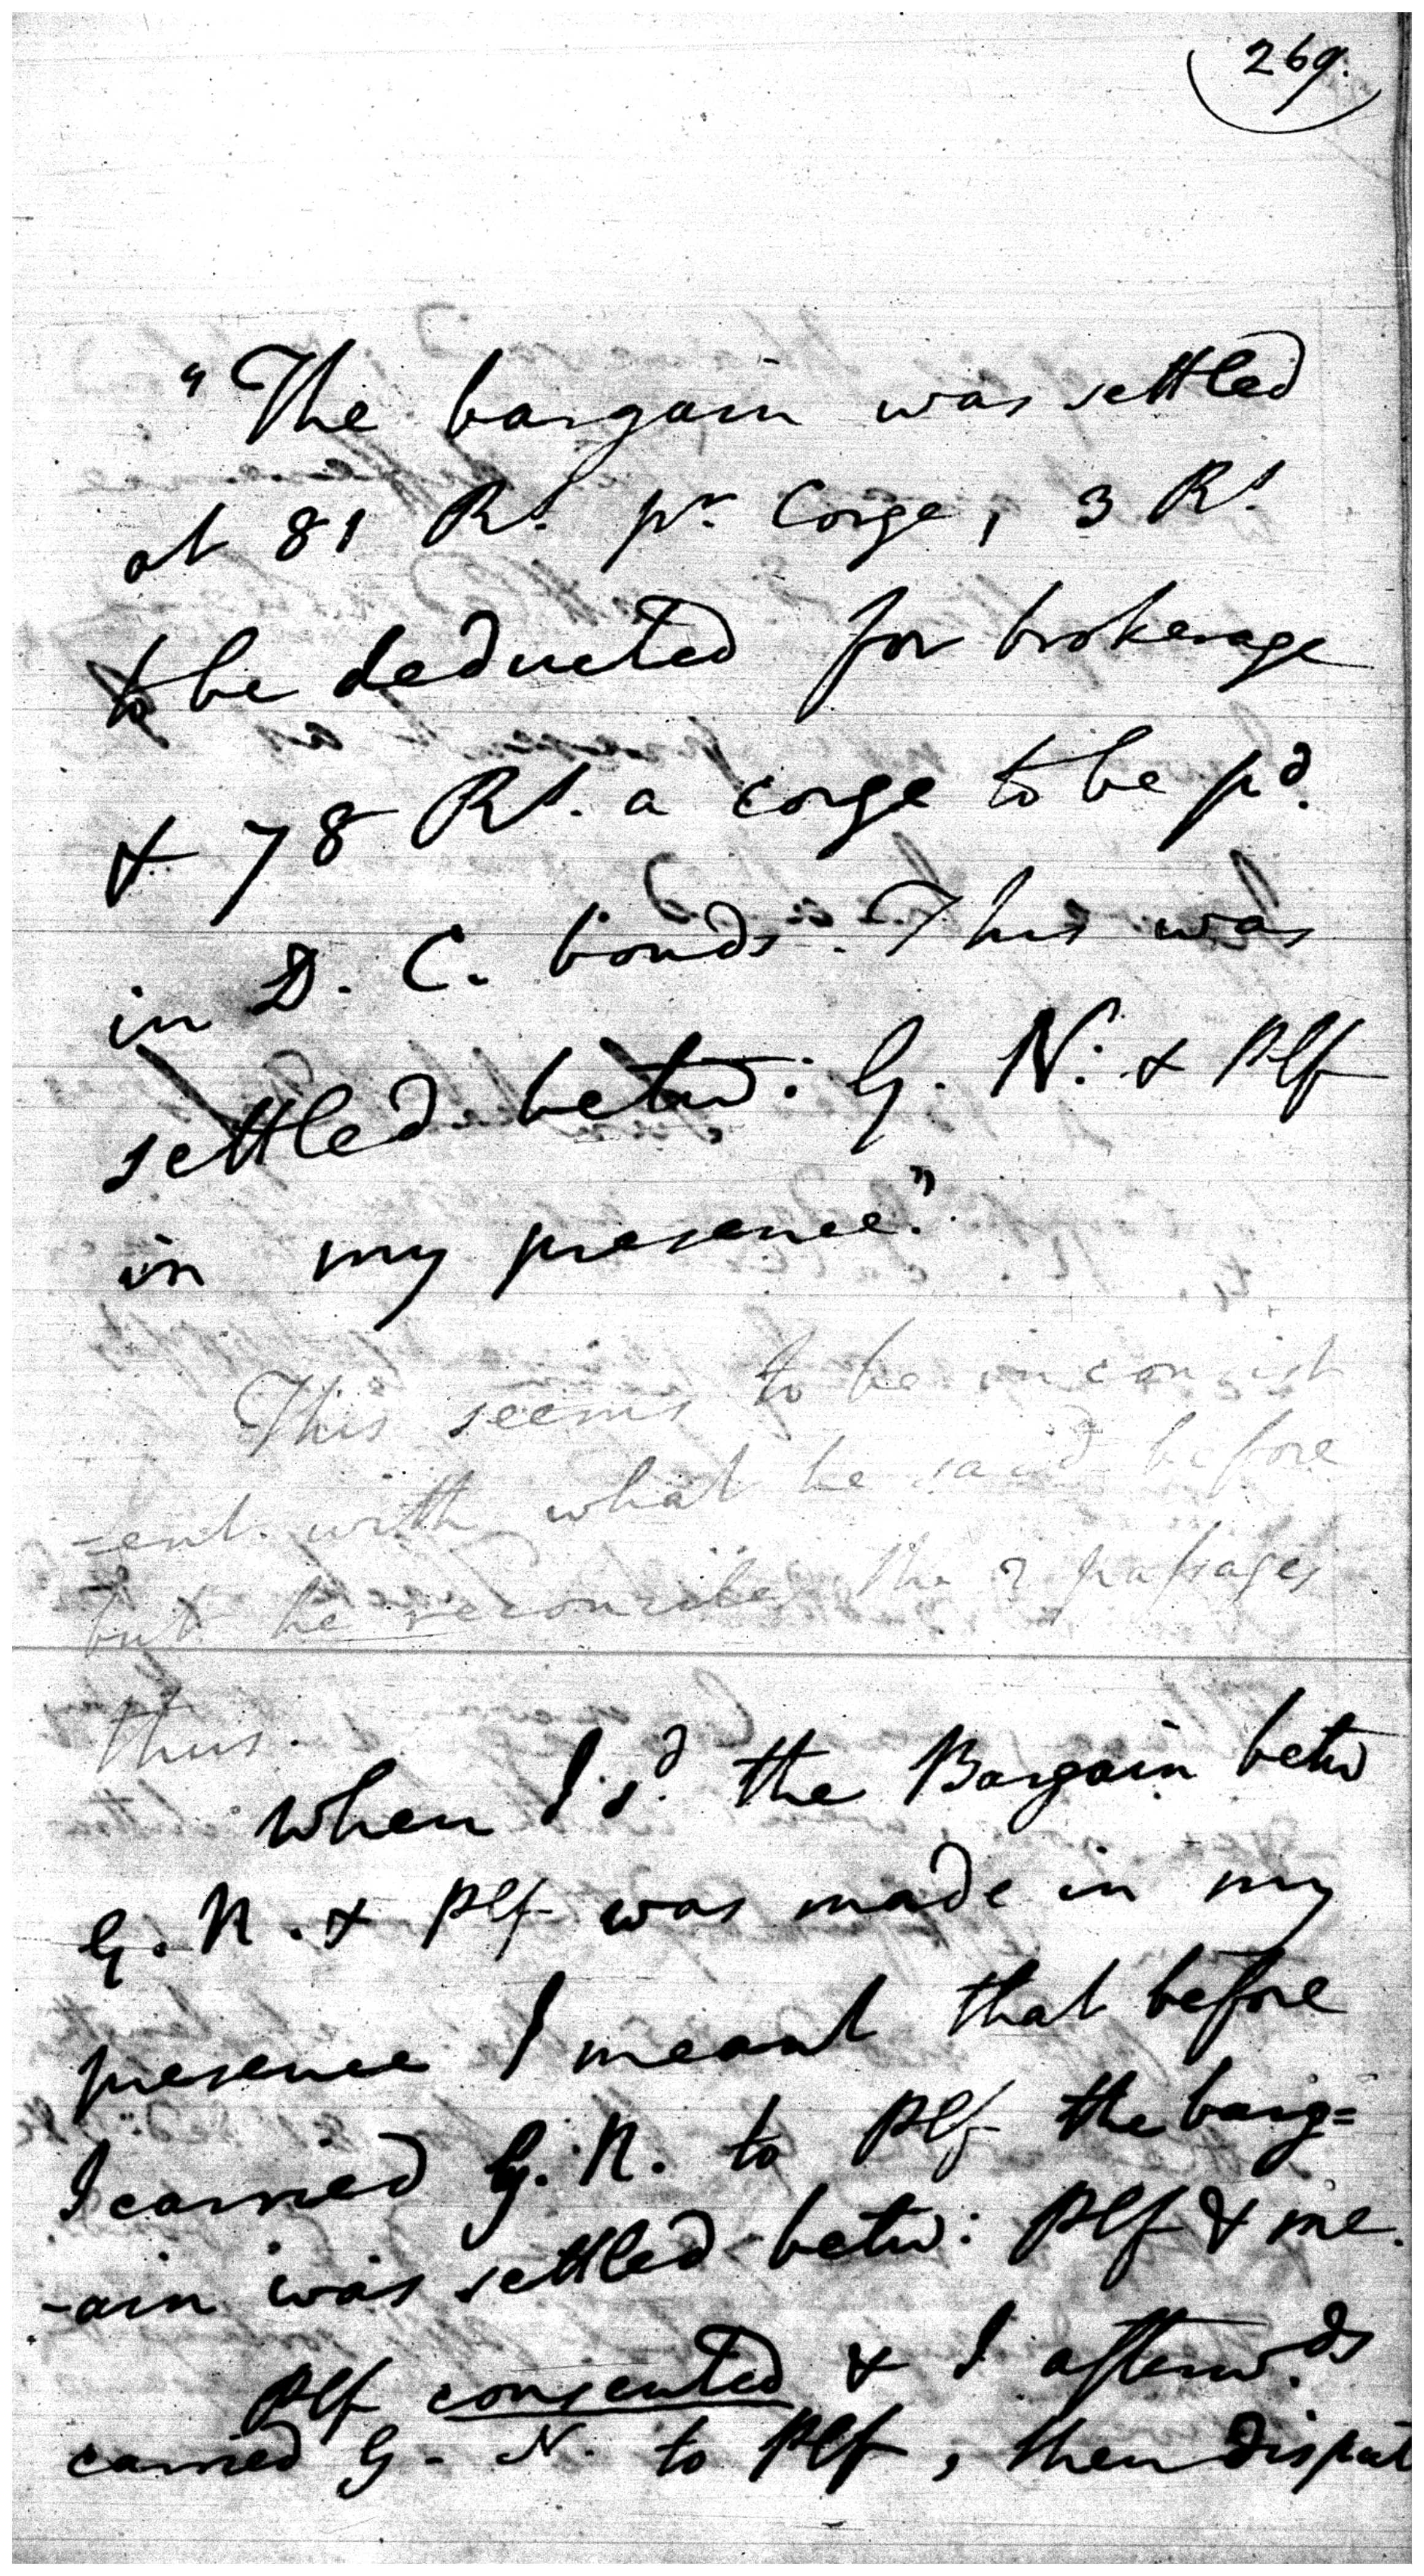 269.
"The bargain was settled
at 81 Rs. pr. Corge, 3 Rs.
to be deducted for brokerage
& 78 Rs. a corge to be pd.
in D. C. bonds. This was
settled betw: G. N. & Plf
in my presence."
This seems to be inconsist
-ent with what he said before
but he reconciles the 2 passages
thus.
When I sd. the Bargain betw
G. N. & Plf was made in my
presence I meant that before
I carried G. N. to Plf the barg=
-ain was settled betw: Plf & me.
Plf consented & I afterw.ds
carried G. N. to Plf, then disput